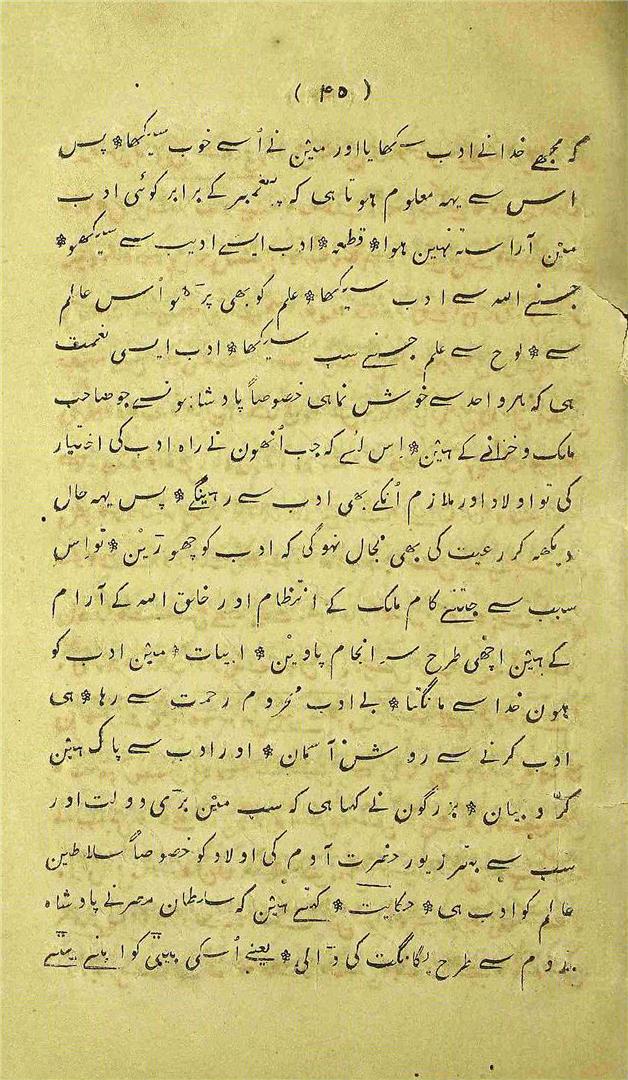 ( ۴۵ )
کہ مجھے خدا نے ادب سکھایا اور میں نے اُسے خوب سیکھا * پس
اس سے یہہ معلوم ہوتا ہی کہ پیغمبر کے برابر کوئی ادب
میں آراستہ نہین ہوا * قطعہ * ادب ایسے ادیب سے سیکھو *
جسنے اللہ سے ادب سیکھا * علم کو بھی پڑھو اُس عالم
سے * لوح سے علم جسنے سب سیکھا * ادب ایسی نعمت
ہی کہ ہر واحد سے خوش نما ہی خصوصاً پادشاہونسے جو صاحب
ملک و خزانے کے ہین * اِس لئے کہ جب اُنھون نے راہ ادب کی اختیار
کی تو اولاد اور ملازم اُنکے بھی ادب سے رہینگے * پس یہہ حال
دیکھہ کر رعیت کی بھی مجال نہوگی کہ ادب کو چھوڑین * تو اِس
سبب سے جتنے کام ملک کے انتظام اور خلق اللہ کے آرام
کے ہین اچھی طرح سرانجام پاوین * ابیات * مین ادب کو
ہون خدا سے مانگتا * بے ادب محروم رحمت سے رہا * ہی
ادب کرنے سے روشن آسمان * اور ادب سے پاک ہین
کرّوبیان * بزرگون نے کہا ہی کہ سب مین بڑی دولت اور
سب سے بہتر زیور حضرت آدم کی اولاد کو خصوصاً سلاطین
عالم کو ادب ہی * حکایت * کہتے ہین کہ سلطان مصر نے پادشاہ
روم سے طرح یگانگت کی ڈالی * یعنے اُسکی بیٹی کو اپنے بیٹے